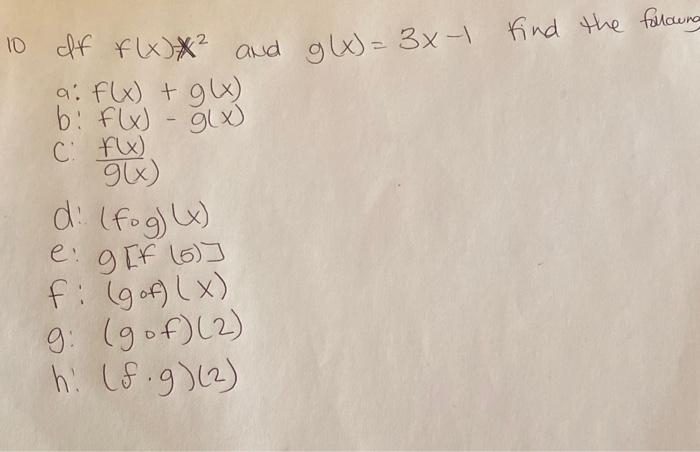 10 If f(x)=x² and g(x) = 3x-1 find the following
a: f(x) + g(x)
b: f(x) - g(x)
c: f(x)
g(x)
d: (f∘g)(x)
e: g[f(5)]
f: (g∘f)(x)
g: (g∘f)(2)
h: (f·g)(2)